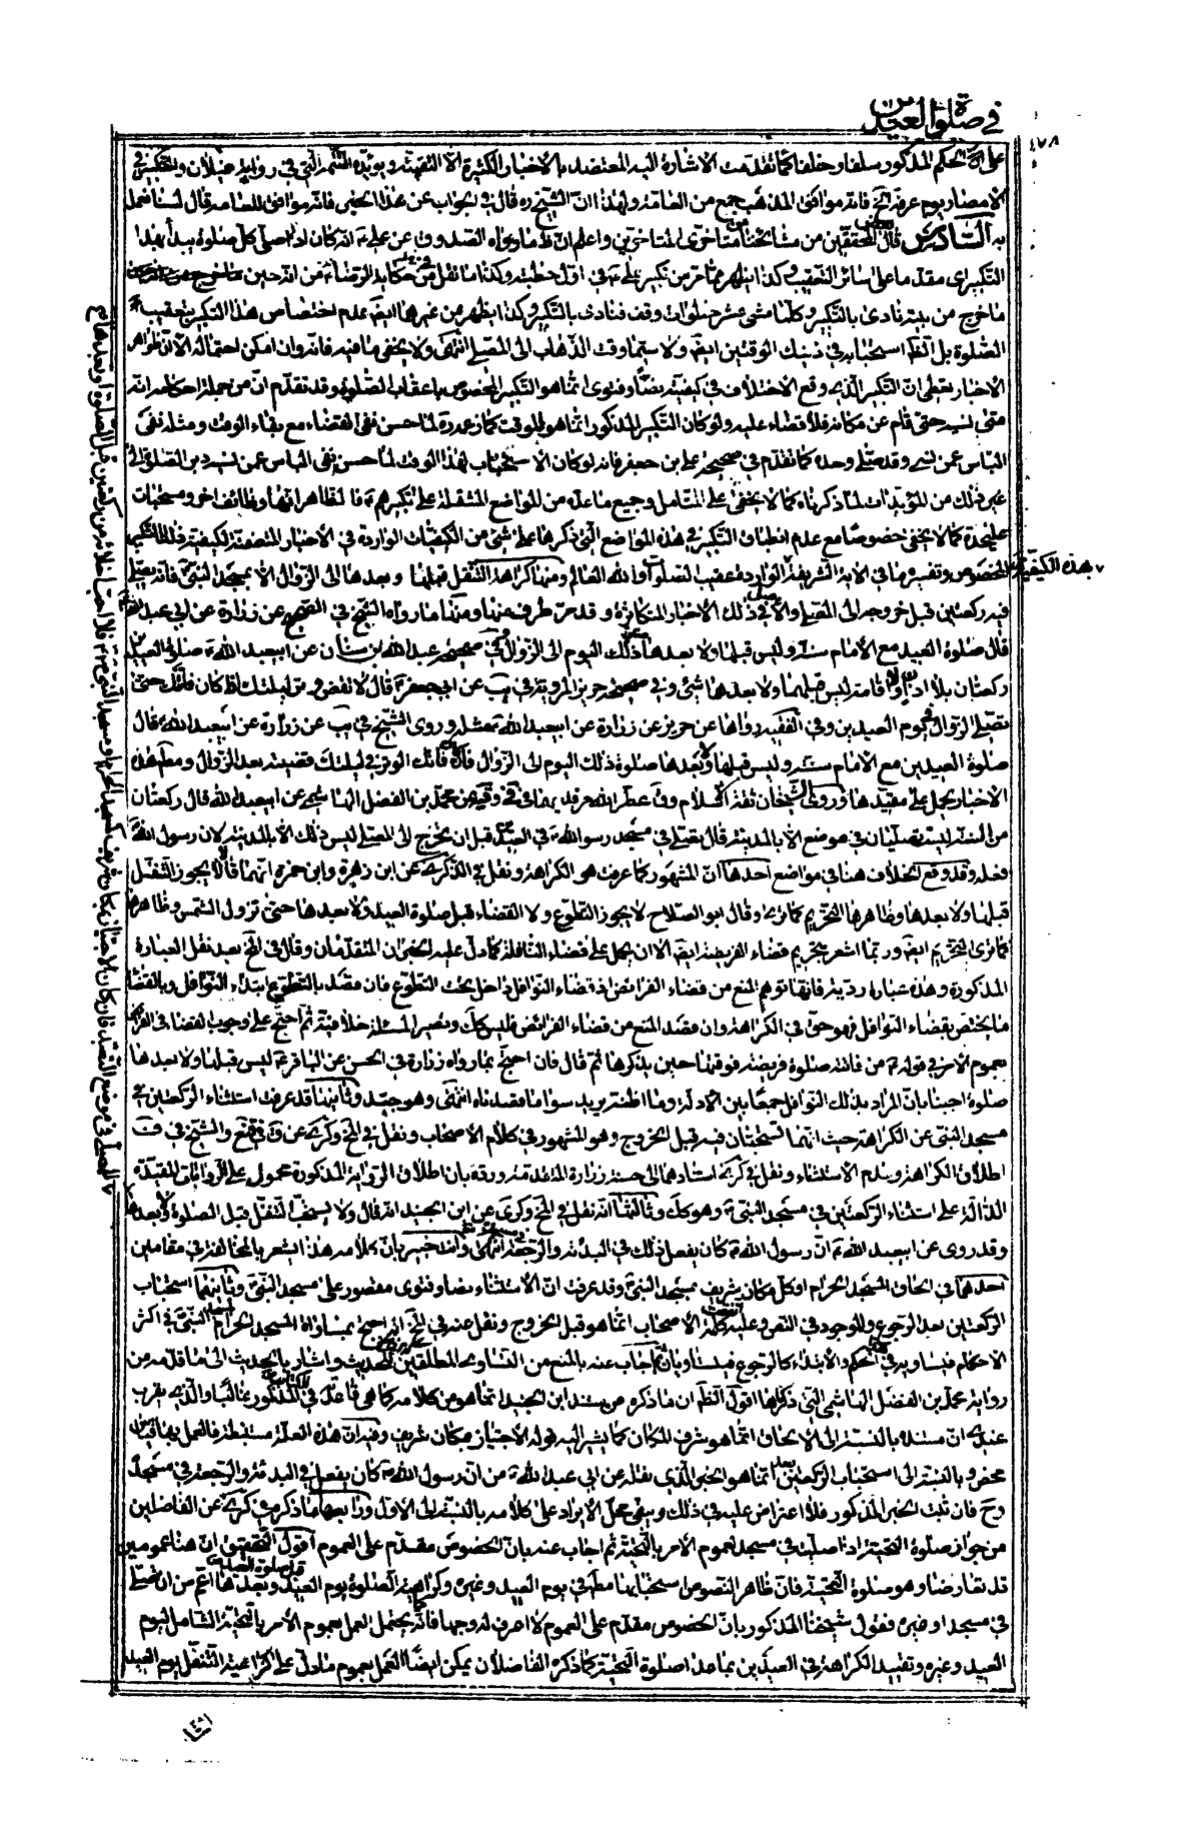 في صلوة العيدين
٤٧٨
على ان الحكم المذكور سلفا وخلفا كما تقدمت الاشارة اليه المعتضد بالاخبار الكثيرة الا التقية ويؤيده التتمة التي في رواية غيلان والتكبير في
الامصار يوم عرفة الخ فانه موافق لمذهب جمع من العامة ولهذا ان الشيخ ره قال في الجواب عن هذا الخبر فانه موافق للعامة قال لسنا نعمل
به السادس قال بعض المحققين من مشايخنا من متأخري المتأخرين واعلم ان ظ ما رواه الصدوق عن علي ع انه كان اذا صلى كل صلوة يبدأ بهذا
التكبير اي مقدما على سائر التعقيب وكذا يظهر مما مر من تكبير علي ع في اول خطبته وكذا ما نقل في حكاية الرضا ع من انه حين
ما خرج من بيته نادى بالتكبير وكلما مشى عشر خطوات وقف فنادى بالتكبير وكذا يظهر من غيرها ايضا عدم اختصاص هذا التكبير بتعقيب
الصلوة بل الظ استحبابه في ذينك الوقتين ايضا ولا سيما وقت الذهاب الى المصلى انتهى ولا يخفى ما فيه فانه وان امكن احتماله الا ان ظواهر
الاخبار يعطي ان التكبير الذي وقع الاختلاف في كيفيته نصا وفتوى انما هو التكبير المخصوص باعقاب الصلوة وقد تقدم ان من جملة احكامه انه
متى نسيه حتى قام عن مكانه فلا قضاء عليه ولو كان التكبير المذكور انما هو للوقت كما زعمه ره لما حسن نفى القضاء مع بقاء الوقت ومثله نفى
الباس عن نسيه وقد صلى وحده كما تقدم في صحيحة علي بن جعفر فانه لو كان الاستحباب لهذا الوقت لما حسن نفى الباس عمن نسيه دبر الصلوة الى
غير ذلك من المؤيدات لما ذكرناه كما لا يخفى على المتأمل وجميع ما عده من المواضع المشتملة على تكبيرهم ع فالظاهر انها وظائف اخر ومستحبات
عليحدة كما لا يخفى خصوصا مع عدم انطباق التكبير في هذه المواضع التي ذكرها على شئ من الكيفيات الواردة في الاخبار المتضمنة لكيفية ذلك التكبير
بهذه الكيفية
المخصوص وتفسير ما في الآية الشريفة الواردة عقيب الصلوات والله العالم ومنها كراهة التنفل قبلها وبعدها الى الزوال الا بمسجد النبي ص فانه يصلي
فيه ركعتين قبل خروجه الى المصلى والاصل في ذلك الاخبار المتكاثرة وقد مر طرف منها ومنها ما رواه الشيخ في الصحيح عن زرارة عن ابي عبد الله ع
قال صلوة العيد مع الامام سنة وليس قبلها ولا بعدها صلوة ذلك اليوم الى الزوال وفي صحيحة عبد الله بن سنان عن ابيعبد الله ع صلوة العيدين
ركعتان بلا اذان ولا اقامة ليس قبلهما ولا بعدهما شئ وفي صحيحة حريز المروية في يب عن ابي جعفر ع قال لا تقض وتر ليلتك اذا كان فاتك حتى
تصلي الزوال في يوم العيدين وفي الفقيه رواها عن حريز عن زرارة عن ابيعبد الله ع مثله وروى الشيخ في يب عن زرارة عن ابيعبد الله ع قال
صلوة العيدين مع الامام سنة وليس قبلها ولا بعدها صلوة ذلك اليوم الى الزوال فان فاتك الوتر في ليلتك قضيته بعد الزوال ومطلق هذه
الاخبار يحمل على مقيدها وروى الشيخان ثقة الاسلام وق عطر الله مرقديهما في في وقيه عن محمد بن الفضل الهاشمي عن ابيعبد الله قال ركعتان
من السنة ليس تصليان في موضع الا بالمدينة قال يصلي في مسجد رسول الله ص في العيد قبل ان يخرج الى المصلى ليس ذلك الا بالمدينة لان رسول الله ص
فعله وقد وقع الخلاف هنا في مواضع احدها ان المشهور كما عرفت هو الكراهة ونقل في الذكرى عن ابن زهرة وابن حمزة انهما قالا لا يجوز التنفل
قبلها ولا بعدها وظاهرها التحريم كما ترى وقال ابو الصلاح لا يجوز التطوع ولا القضاء قبل صلوة العيد ولا بعدها حتى تزول الشمس وظاهره
كما ترى التحريم ايضا وربما اشعر بتحريم قضاء الفريضة ايضا الا ان يحمل على قضاء النافلة كما دل عليه الخبران المتقدمان وقال في لخ بعد نقل العبارة
المذكورة وهذه عبارة رديئة فانها توهم المنع من قضاء الفرائض اذ قضاء النوافل داخل تحت التطوع فان قصد بالتطوع ابتداء النوافل وبالقضاء
ما يختص بقضاء النوافل فهو حق في الكراهة وان قصد المنع من قضاء الفرائض فليس كك وتصير المسئلة خلافية ثم احتج على وجوب القضاء في الفرائض
بعموم الامر في قوله ع من فاتته صلوة فريضة فوقتها حين يذكرها ثم قال فان احتج بما رواه زرارة في الحسن عن الباقر ع ليس قبلها ولا بعدها
صلوة اجبنا بان المراد بذلك النوافل جمعا بين الادلة وما اظنه يريد سوى ما قصدناه انتهى وهو جيد وثانيها قد عرفت استثناء الركعتين في
مسجد النبي عن الكراهة حيث انهما تستحبان فيه قبل الخروج وهو المشهور في كلام الاصحاب ونقل في لخ وكرى عن ق في قنع والشيخ في ف
اطلاق الكراهة وعدم الاستثناء ونقل في كرى استنادهما الى حسنة زرارة المتقدمة ورده بان اطلاق الرواية المذكورة محمول على الروايات المقيدة
الدالة على استثناء الركعتين في مسجد النبي ص وهو كك وثالثها انه نقل في لخ وكرى عن ابن الجنيد انه قال ولا يستحب التنفل قبل الصلوة ولا بعدها
وقد روى عن ابيعبد الله ع ان رسول الله ص كان يفعل ذلك في البدئة والرجعة في مسجده انتهى وانت خبير بان كلامه هذا اشعر بالمخالفة في مقامين
احدهما في الحاق المسجد الحرام او كل مكان شريف بمسجد النبي وقد عرفت ان الاستثناء نصا وفتوى مقصور على مسجد النبي ص وثانيهما استحباب
الركعتين بعد الرجوع والموجود في النص وعليه كلمة الاصحاب انما هو قبل الخروج ونقل عنه في لخ انه احتج بمساواة المسجد الحرام لمسجد النبي ص في اكثر
الاحكام فيساويه في هذا الحكم والابتداء كالرجوع فيتساويان ثم اجاب عنه بالمنع من التساوي المطلق للحديث واشار بالحديث الى ما قدمه من
رواية محمد بن الفضل الهاشمي التي ذكرناها اقول الظ ان ما ذكره من سند ابن الجنيد انما هو من كلامه كما هي قاعدته في الكتاب المذكور غالبا والذي يقرب
عندي ان مستنده بالنسبة الى الالحاق انما هو شرف المكان كما يشير اليه قوله الاجتياز بمكان شريف وفيه ان هذه العلة مستنبطة فالعمل بها قياس
محض وبالنسبة الى استحباب الركعتين بعد انما هو الخبر الذي نقله عن ابي عبد الله ع من ان رسول الله ص كان يفعل في البدئة والرجعة في مسجده
وح فان ثبت الخبر المذكور فلا اعتراض عليه في ذلك ويبقى محل الايراد على كلامه بالنسبة الى الاول ورابعها ما ذكره في كرى عن الفاضلين
من جواز صلوة التحية اذا صليت في مسجد لعموم الامر بالتحية ثم اجاب عنه بان الخصوص مقدم على العموم اقول التحقيق ان هنا عمومين
قد تعارضا وهو صلوة التحية فان ظاهر النصوص استحبابها مطلقا في يوم العيد وغيره وكراهية الصلوة يوم العيد قبل صلوة العيد وبعدها اعم من ان يصلي
في مسجد او غيره فقول شيخنا المذكور بان الخصوص مقدم على العموم لا اعرف له وجها فانه كما يحتمل العمل بعموم الامر بالتحية الشامل ليوم
العيد وغيره وتقييد الكراهة في العيدين بما عدا صلوة التحية كما ذكره الفاضلان يمكن ايضا العمل بعموم ما دل على كراهية التنفل يوم العيد